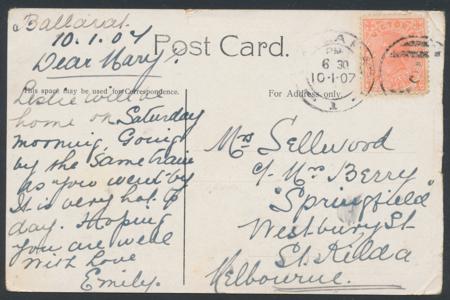 Ballarat
10.1.07
Dear Mary,
Post Card.
This space may be used for Correspondence.
For Address only.
PM
6 30
10-1-07
1
VICTORIA
Leslie will be
home on Saturday
morning, Going
by the same train
as you went by
It is very hot to
day. Hoping
you are well
With Love
Emily.
Mrs Sellwood
c/- Mrs Berry
"Springfield"
Westbury St
St. Kilda
Melbourne.